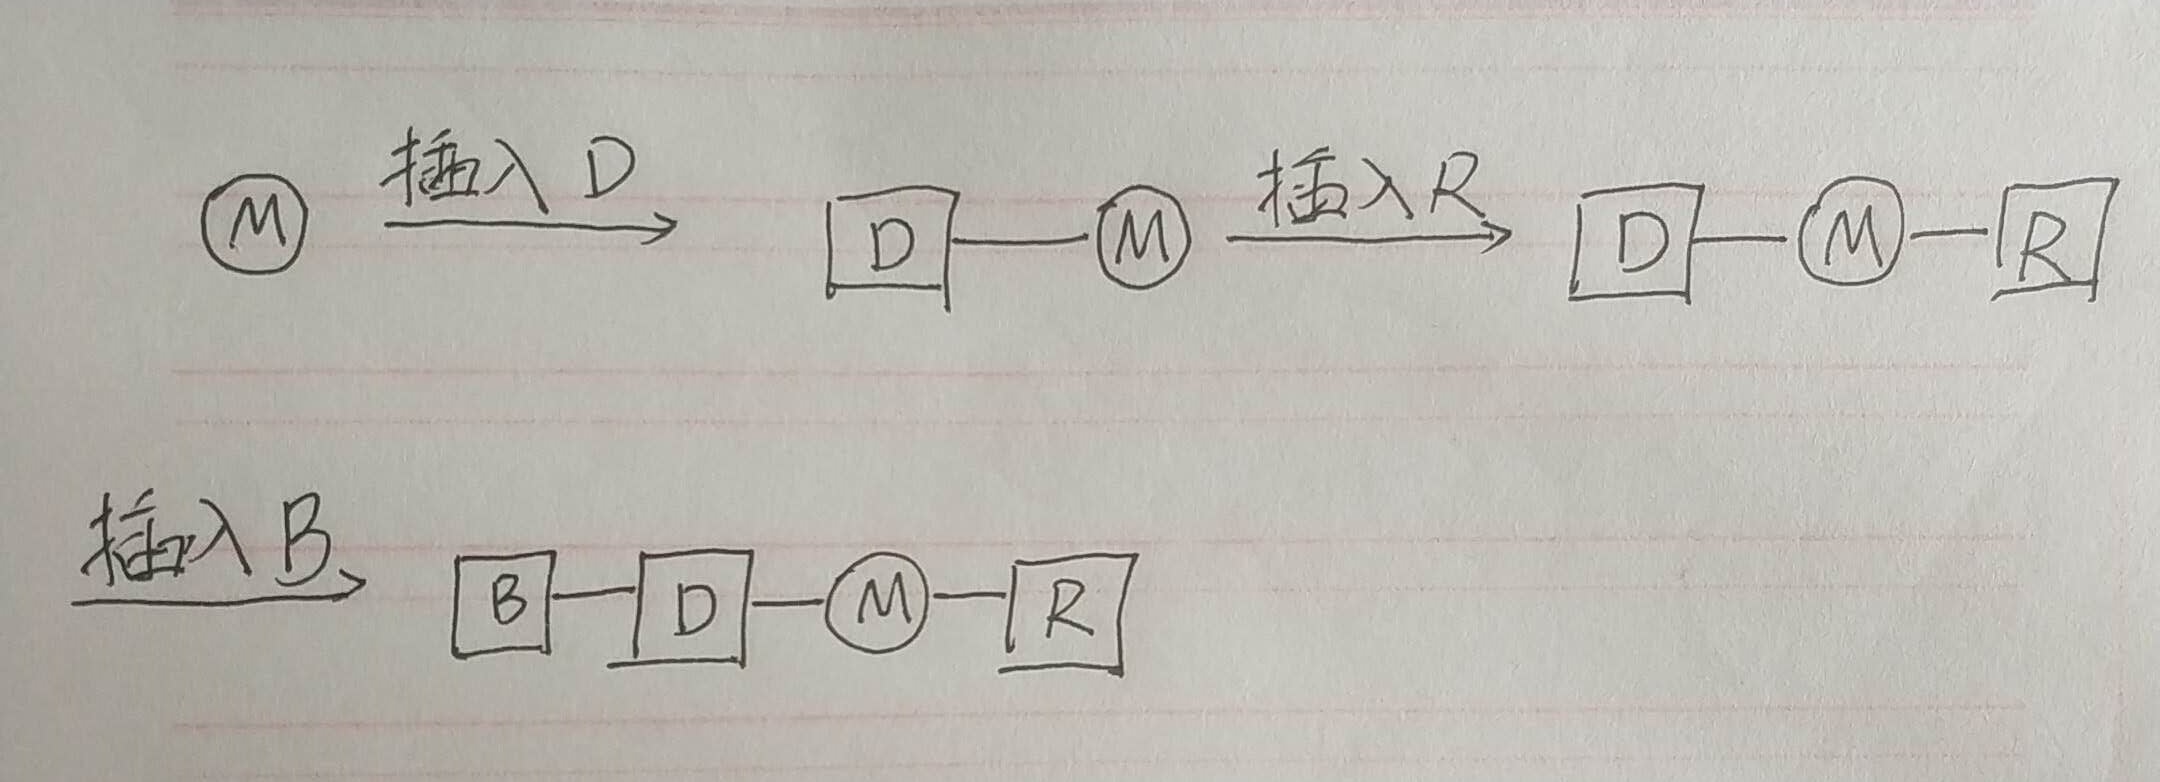 M 插入D D M 插入R D M R
插入B B D M R